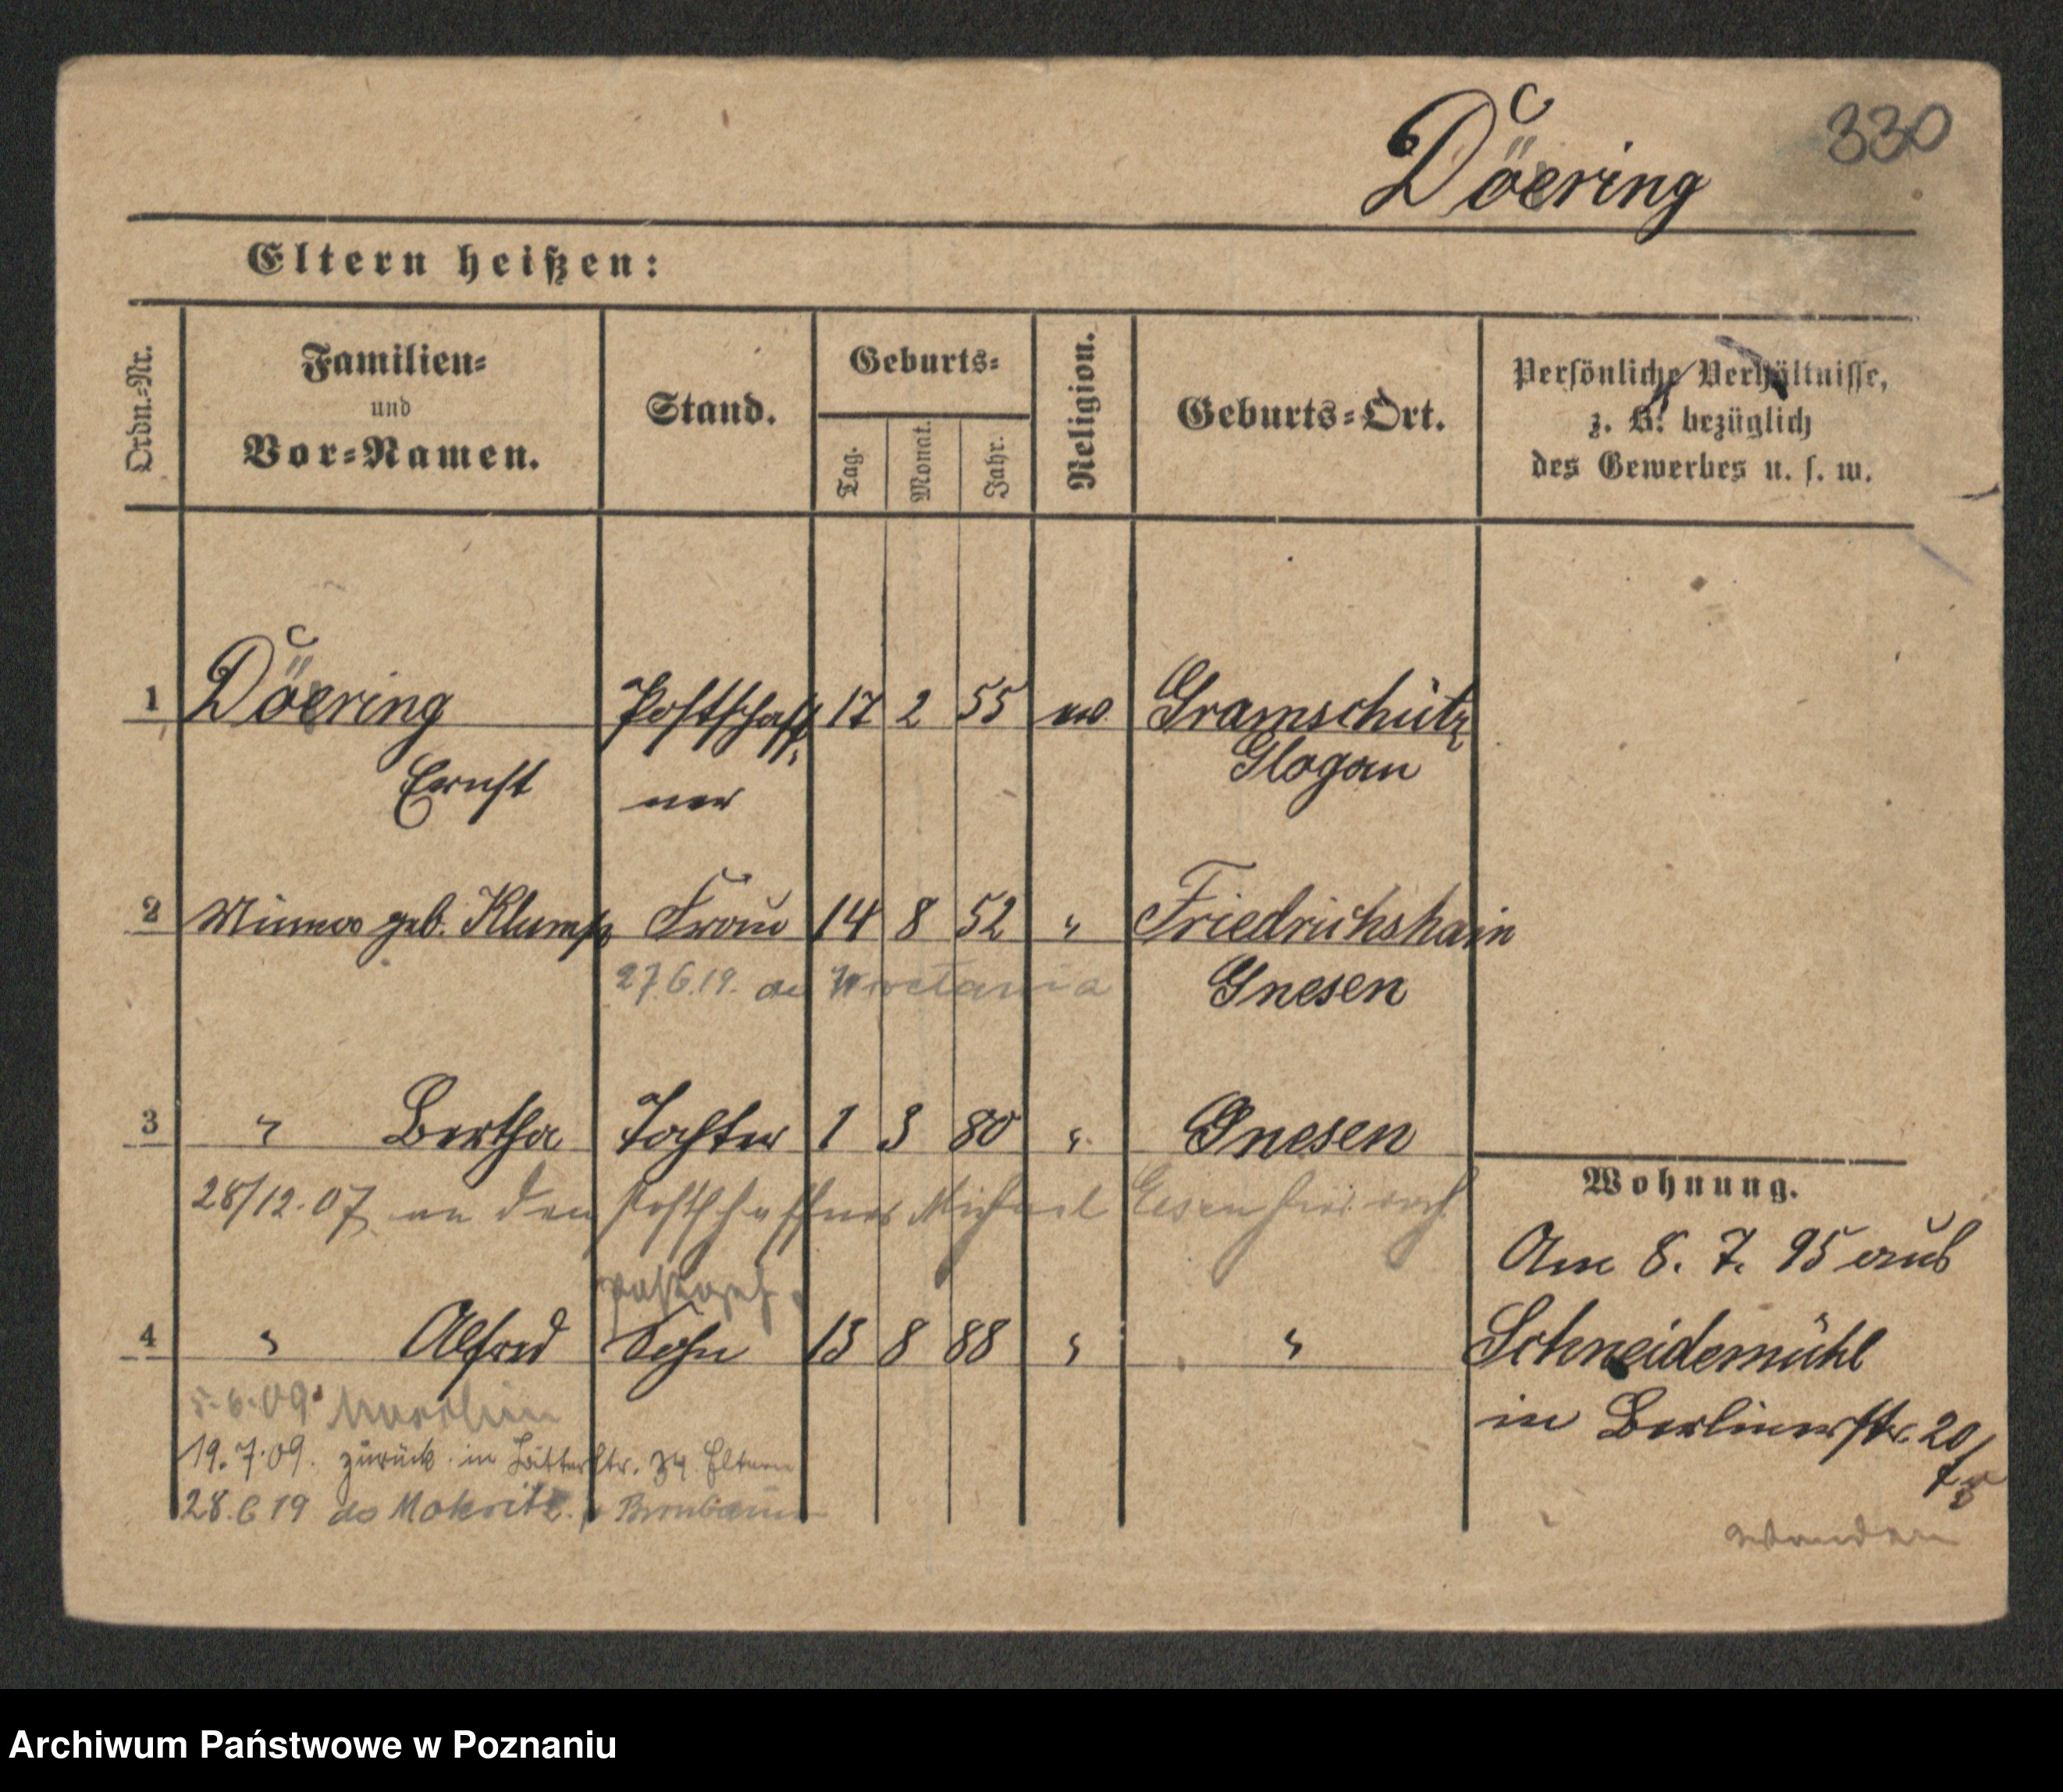 330
Döering
Eltern heißen:
Ordn.-Nr.
Familien-
und
Vor-Namen.
Stand.
Geburts-
Tag.
Monat.
Jahr.
Religion.
Geburts-Ort.
Persönliche Verhältnisse,
z. B. bezüglich
des Gewerbes u. s. w.
1 Döering Postschaff- 17 2 55 ev. Gramschütz
Ernst ner Glogau
2 Minna geb. Klump Frau 14 8 52 " Friedrichshain
27.6.19. Gnesen
3 " Bertha Tochter 1 3 80 " Gnesen
28/12.07 an den Postschaffner Michael
Wohnung.
Am 8. 7. 95 aus
4 " Alfred Sohn 13 8 88 " "
Schneidemühl
5.6.09
in Berlinerstr. 20
19.7.09. zurück in Ritterstr. 34 Eltern
28.6 19 do Mokritz Birnbaum
Archiwum Państwowe w Poznaniu